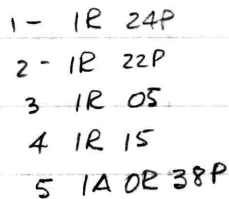 1 - IR 24P
2 - IR 22P
3 IR 05
4 IR 15
5 IA OR 38P